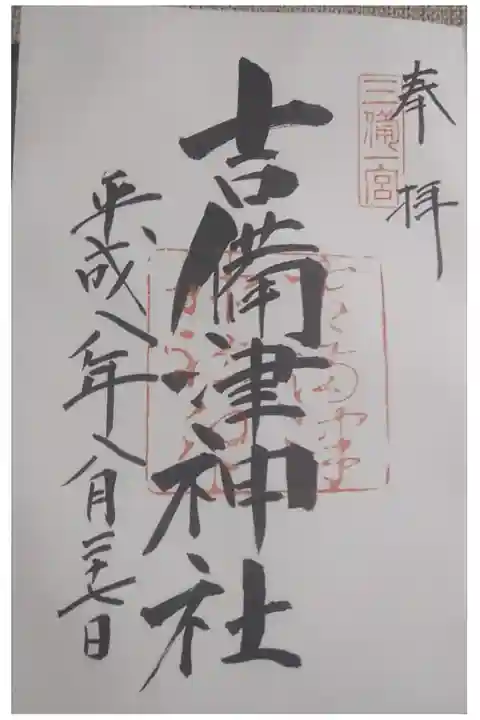 奉拝
三備一宮
吉備津神社
平成八年八月二十七日